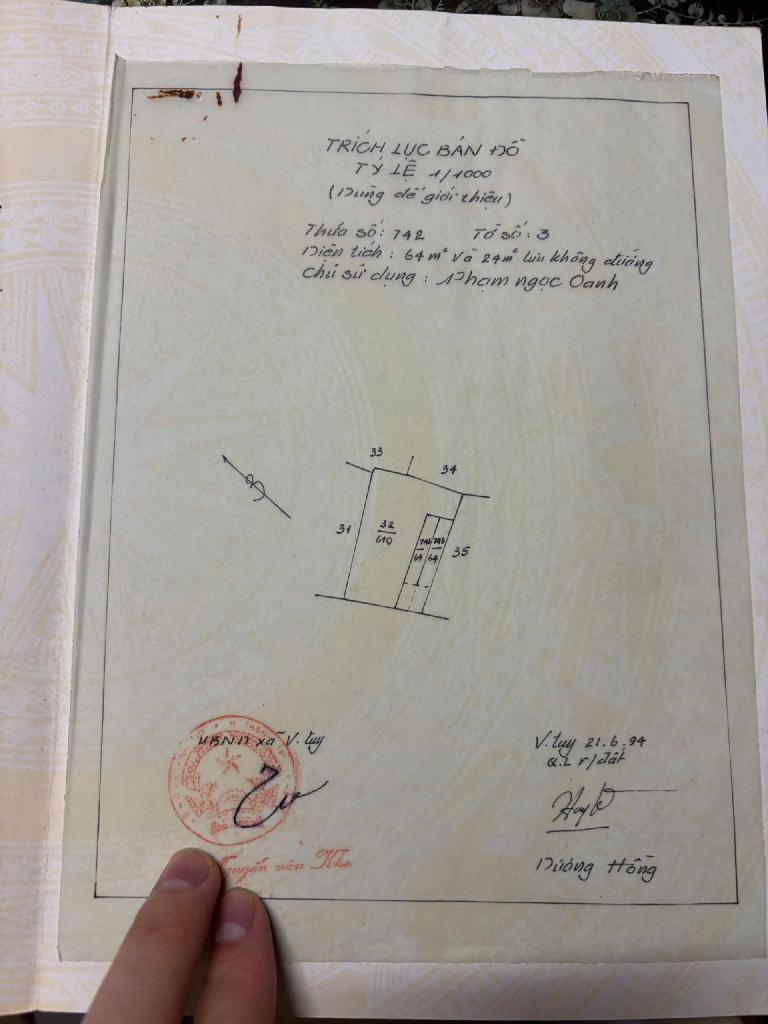 TRÍCH LỤC BẢN ĐỒ
TỶ LỆ 1/1000
(Dùng để giới thiệu)
Thửa số: 742 Tờ số: 3
Diện tích: 64 m² và 24m² lưu không đường
Chủ sử dụng: Phạm ngọc Oanh
33
34
31
32
610
742
64
743
64
35
B
UBND xã V. tuy
V. tuy 21.6.94
Q.L r/đất
Nguyễn văn
Dương Hồng